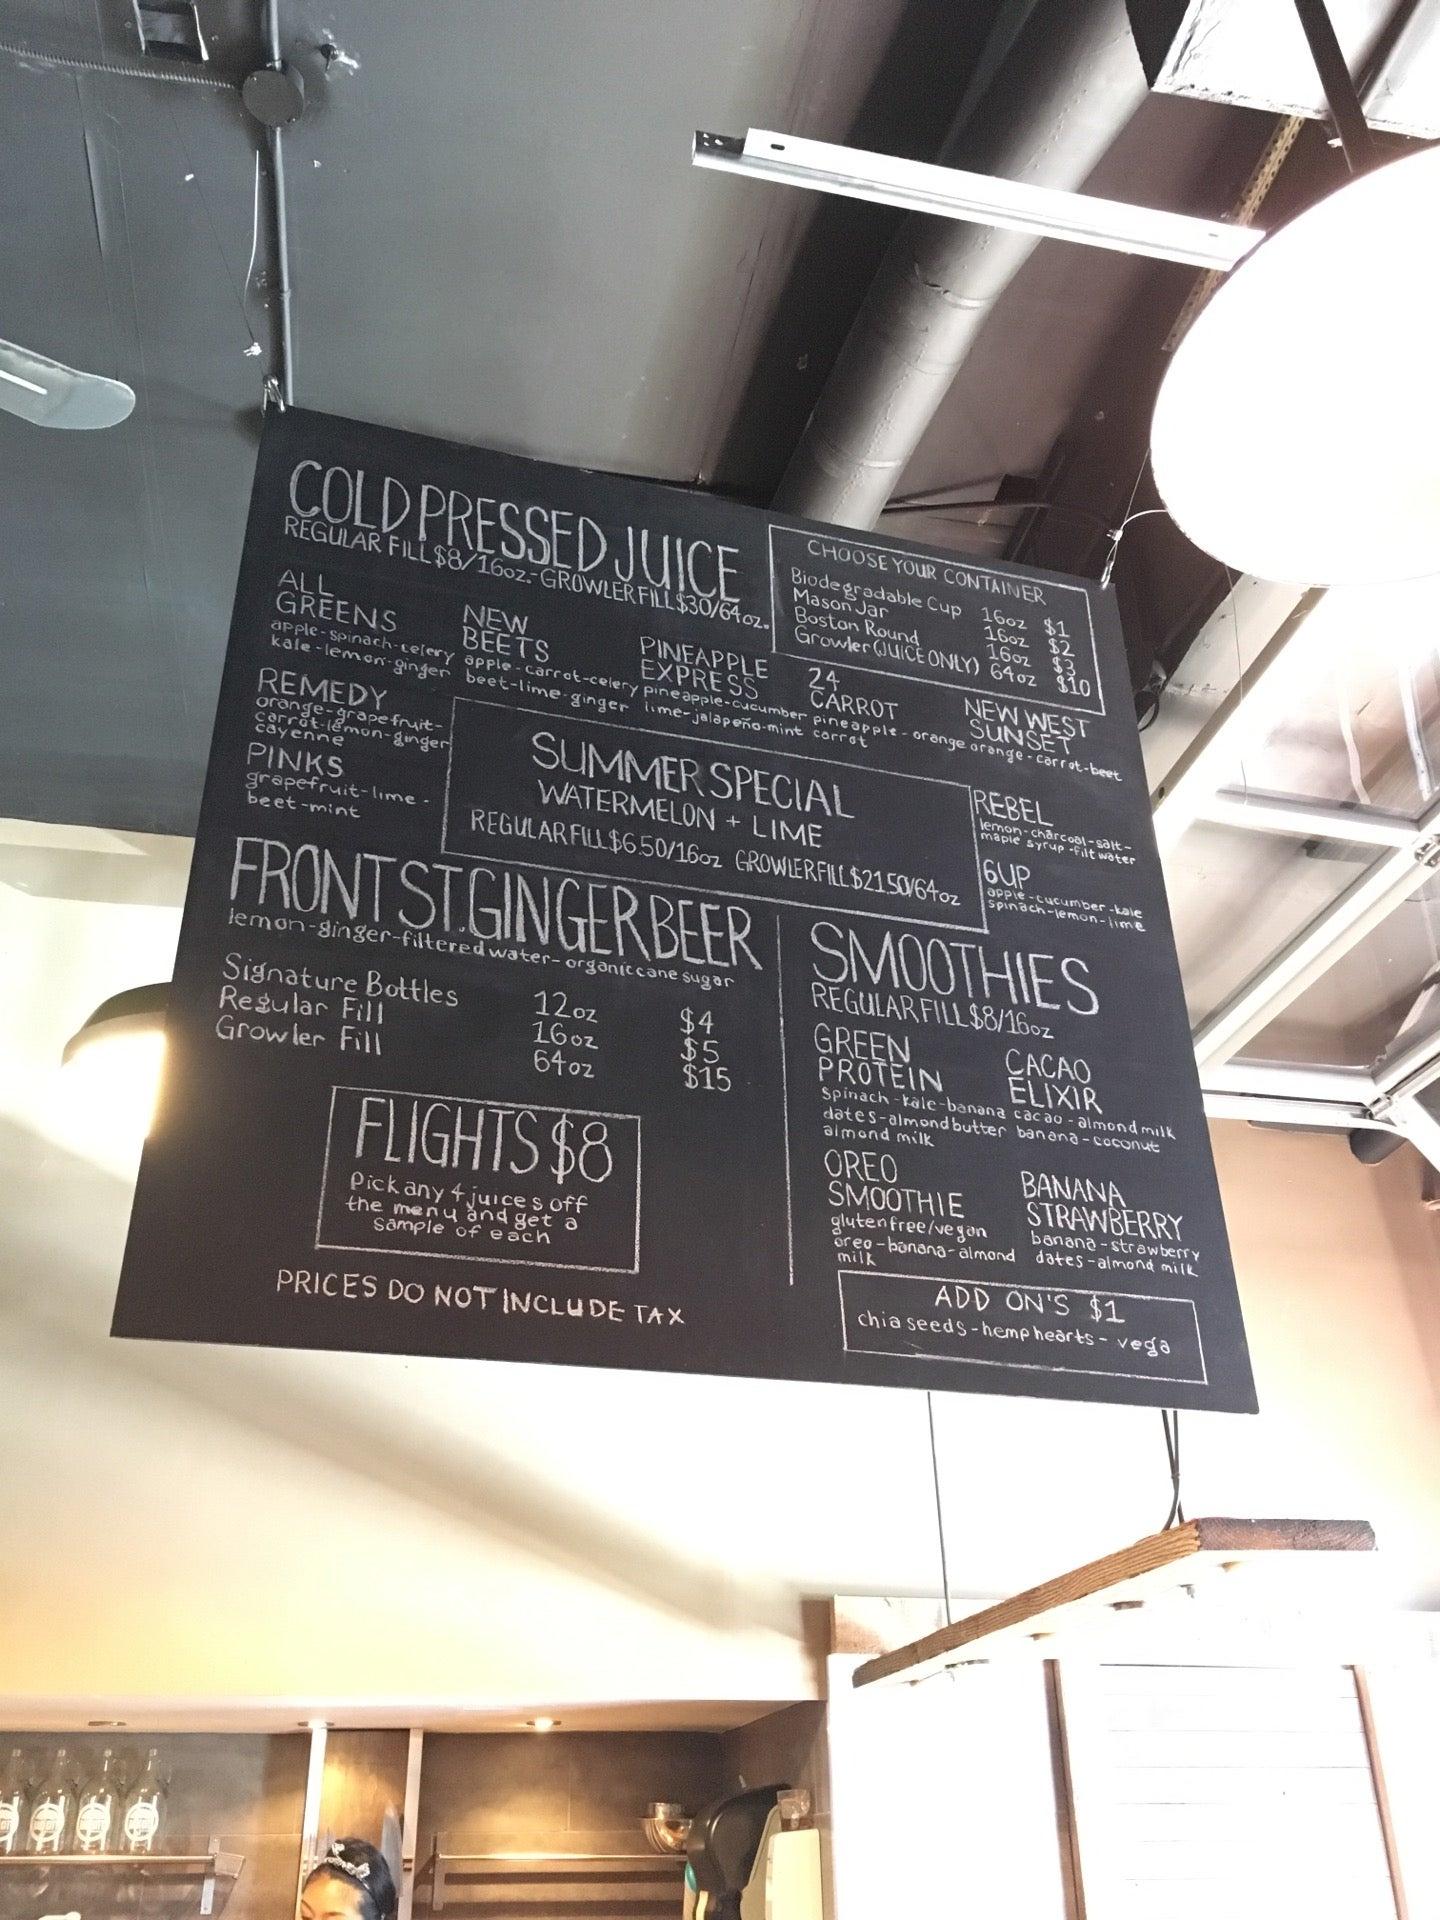 COLD PRESSED JUICE
REGULAR FILL $8/16oz. - GROWLER FILL $30/64oz.
CHOOSE YOUR CONTAINER
Biodegradable Cup 16oz $1
Mason Jar 16oz $2
Boston Round 16oz $3
Growler (JUICE ONLY) 64oz $10
ALL
GREENS
apple-spinach-celery
kale-lemon-ginger
NEW
BEETS
apple-carrot-celery
beet-lime-ginger
PINEAPPLE
EXPRESS
pineapple-cucumber
lime-jalapeño-mint
24
CARROT
pineapple-orange
carrot
NEW WEST
SUNSET
orange-carrot-beet
REMEDY
orange-grapefruit-
carrot-lemon-ginger
cayenne
PINKS
grapefruit-lime-
beet-mint
SUMMER SPECIAL
WATERMELON + LIME
REGULAR FILL $6.50/16oz GROWLER FILL $21.50/64oz
REBEL
lemon-charcoal-salt-
maple syrup-filt water
6UP
apple-cucumber-kale
spinach-lemon-lime
FRONT ST. GINGER BEER
lemon-ginger-filtered water-organic cane sugar
Signature Bottles 12oz $4
Regular Fill 16oz $5
Growler Fill 64oz $15
FLIGHTS $8
Pick any 4 juices off
the menu and get a
sample of each
PRICES DO NOT INCLUDE TAX
SMOOTHIES
REGULAR FILL $8/16oz
GREEN
PROTEIN
spinach-kale-banana
dates-almond butter
almond milk
CACAO
ELIXIR
cacao-almond milk
banana-coconut
OREO
SMOOTHIE
gluten free/vegan
oreo-banana-almond
milk
BANANA
STRAWBERRY
banana-strawberry
dates-almond milk
ADD ON'S $1
chia seeds-hemp hearts-vega